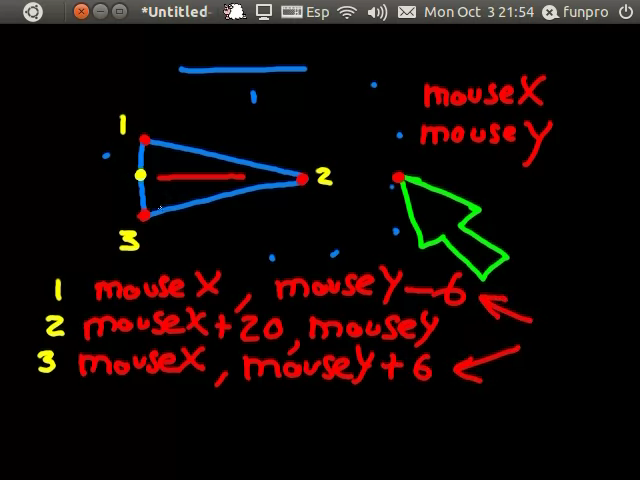 *Untitled Esp Mon Oct 3 21:54 funpro
mouseX
mouseY
1
2
3
1 mouseX, mouseY-6
2 mouseX+20, mouseY
3 mouseX, mouseY+6